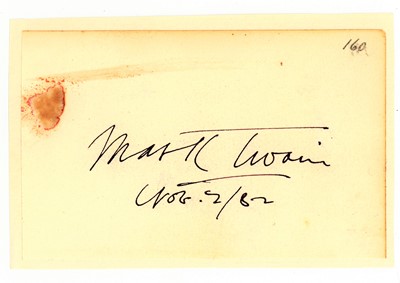 160
Mark Twain
Nov. 2/82